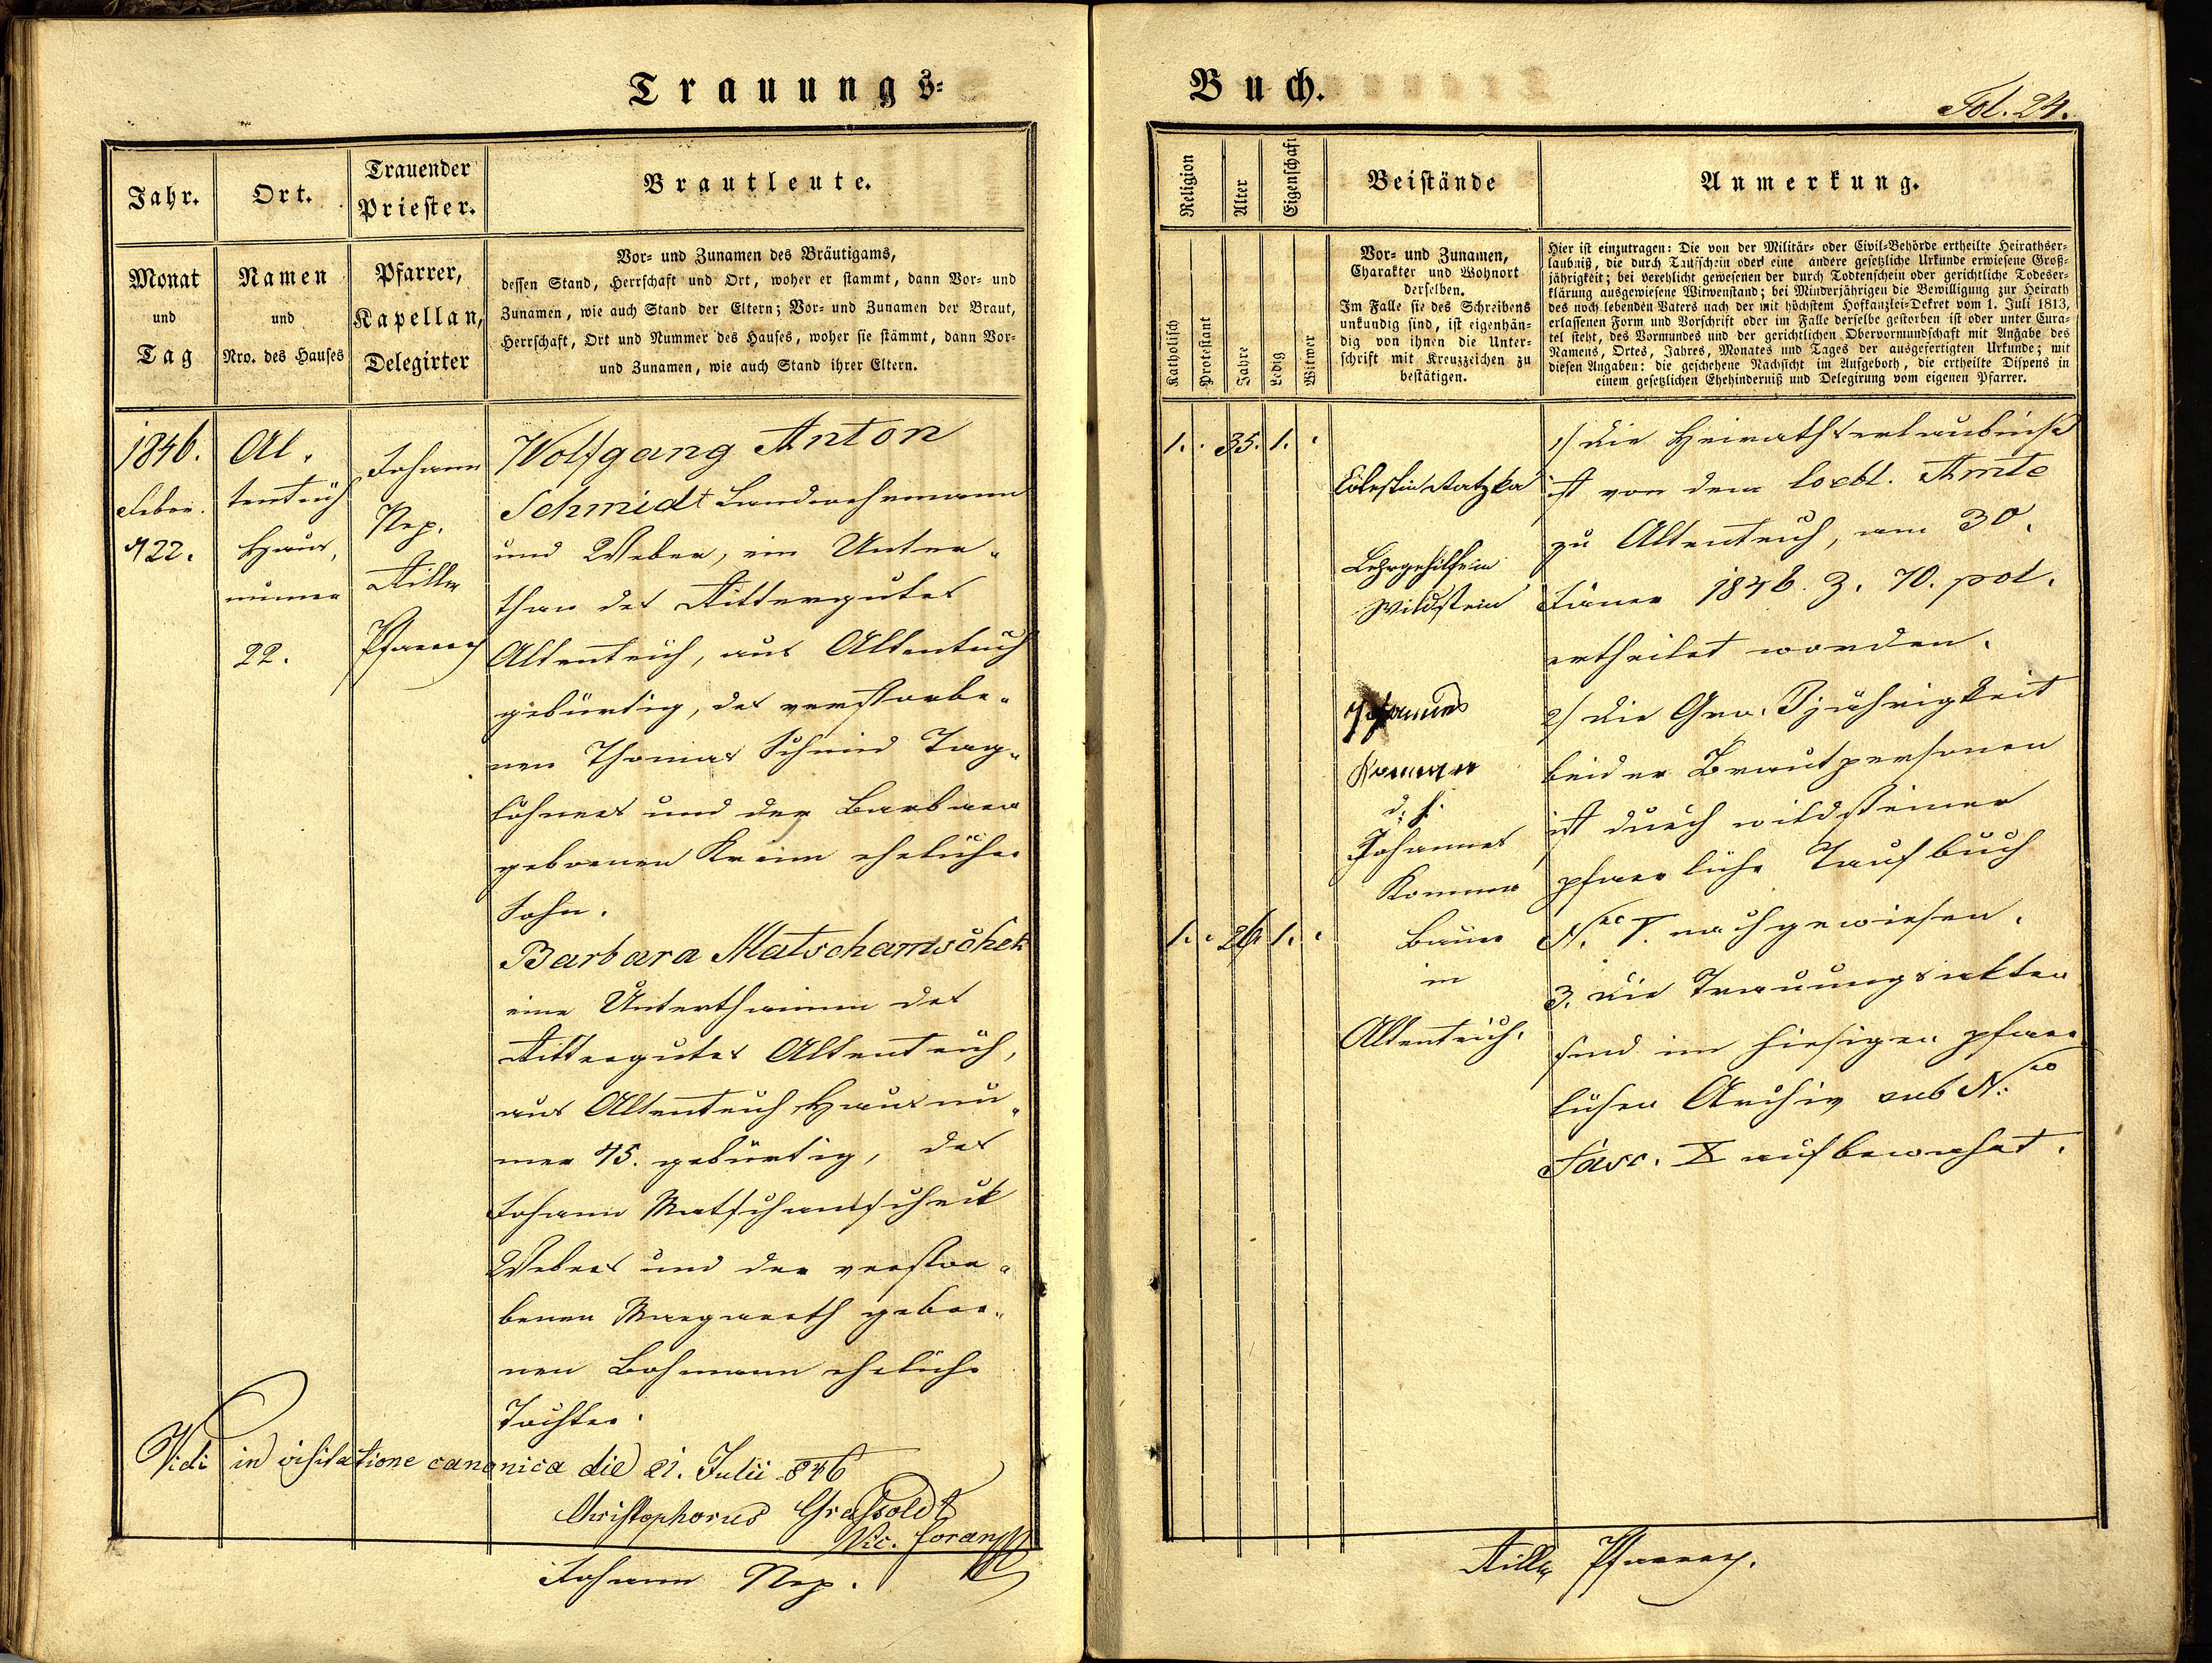 Trauungs-
Jahr.
Ort.
Trauender
Priester.
Brautleute.
Monat
und
Tag
Namen
und
Nro. des Hauses
Pfarrer,
Kapellan,
Delegirter
Vor- und Zunamen des Bräutigams,
dessen Stand, Herrschaft und Ort, woher er stammt, dann Vor- und
Zunamen, wie auch Stand der Eltern; Vor- und Zunamen der Braut,
Herrschaft, Ort und Nummer des Hauses, woher sie stämmt, dann Vor-
und Zunamen, wie auch Stand ihrer Eltern.
1846.
Feber.
22.
Al-
tenteich
Haus-
numer
22.
Johann
Nep.
Pfarrer
Wolfgang Anton
Schmidt Landwehrmann
und Weber, ein Unter-
than des Rittergutes
Altenteich, aus Altenteich
gebürtig, des verstorbe-
nen Thomas Schmid Tag-
löhners und der Barbara
gebornen ehelicher
Sohn.
Barbara Matschamschek
eine Unterthaninn des
Rittergutes Altenteich,
aus Altenteich Hausnu-
mer 45. gebürtig, des
Johann Matschamscheck
Webers und der verstor-
benen Margareth gebor-
nen Lohmann eheliche
Tochter.
Vidi in visitatione canonica die 21. Julii 846
Christophorus Graßold
Vic. foran
Johann Nep.
Buch.
Fol. 24.
Religion
Alter
Eigenschaft
Beistände
Anmerkung.
Katholisch
Protestant
Jahre
Ledig
Witwer
Vor- und Zunamen,
Charakter und Wohnort
derselben.
Im Falle sie des Schreibens
unkundig sind, ist eigenhän-
dig von ihnen die Unter-
schrift mit Kreuzzeichen zu
bestätigen.
Hier ist einzutragen: Die von der Militär- oder Civil-Behörde ertheilte Heirathser-
laubniß, die durch Taufschein oder eine andere gesetzliche Urkunde erwiesene Groß-
jährigkeit; bei verehlicht gewesenen der durch Todtenschein oder gerichtliche Todeser-
klärung ausgewiesene Witwenstand; bei Minderjährigen die Bewilligung zur Heirath
des noch lebenden Vaters nach der mit höchstem Hofkanzlei-Dekret vom 1. Juli 1813,
erlassenen Form und Vorschrift oder im Falle derselbe gestorben ist oder unter Cura-
tel steht, des Vormundes und der gerichtlichen Obervormundschaft mit Angabe des
Namens, Ortes, Jahres, Monates und Tages der ausgefertigten Urkunde; mit
diesen Angaben: die geschehene Nachsicht im Aufgeboth, die ertheilte Dispens in
einem gesetzlichen Ehehinderniß und Delegirung vom eigenen Pfarrer.
1. . 35. 1. .
Cölestin Ratzka
Lehrgehilfe in
Wildstein
Johannes
d. h.
Johannes
Kommer
Bauer
in
Altenteich.
1. . 26. 1. .
1/ die Heirathserlaubniß
ist von dem loebl. Amte
zu Altenteich, am 30.
Jäner 1846 Z. 70. pol.
ertheilet worden.
2/ die Gro.ßjährigkeit
beider Brautpersonen
ist durch wildsteiner
pfarrliche Taufbuch
nachgewiesen.
3. die Trauungsakten
sind im hiesigen pfarr
lichen Archiv sub N.ro
Fasc. X aufbewahrt.
Pfarrer.